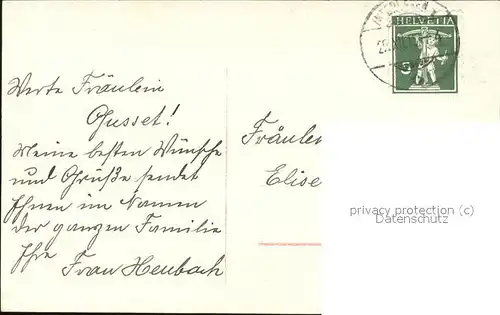 HELVETIA
5
Werte Fräulein
Gusset!
Meine besten Wünsche
und Grüße sendet
Ihnen im Namen
der ganzen Familie
Ihre
Frau Heubach
Fräulen
Elise
privacy protection (c)
Datenschutz